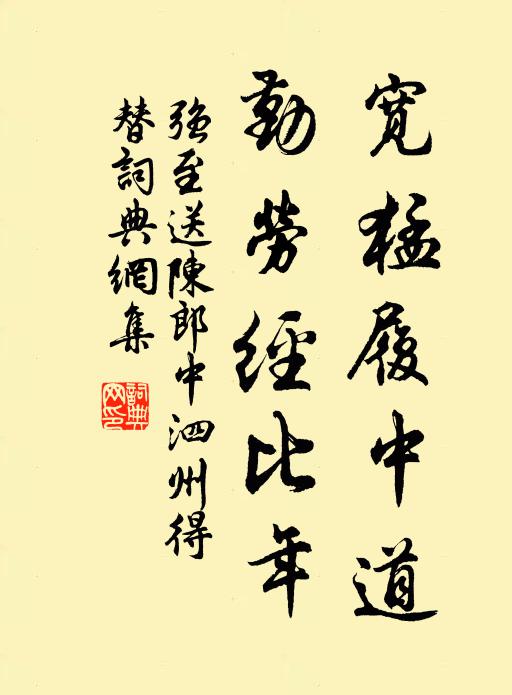 寬猛履中道
勤勞經比年
强至送陳郎中泗州得
替詞典網集
詞典
网印